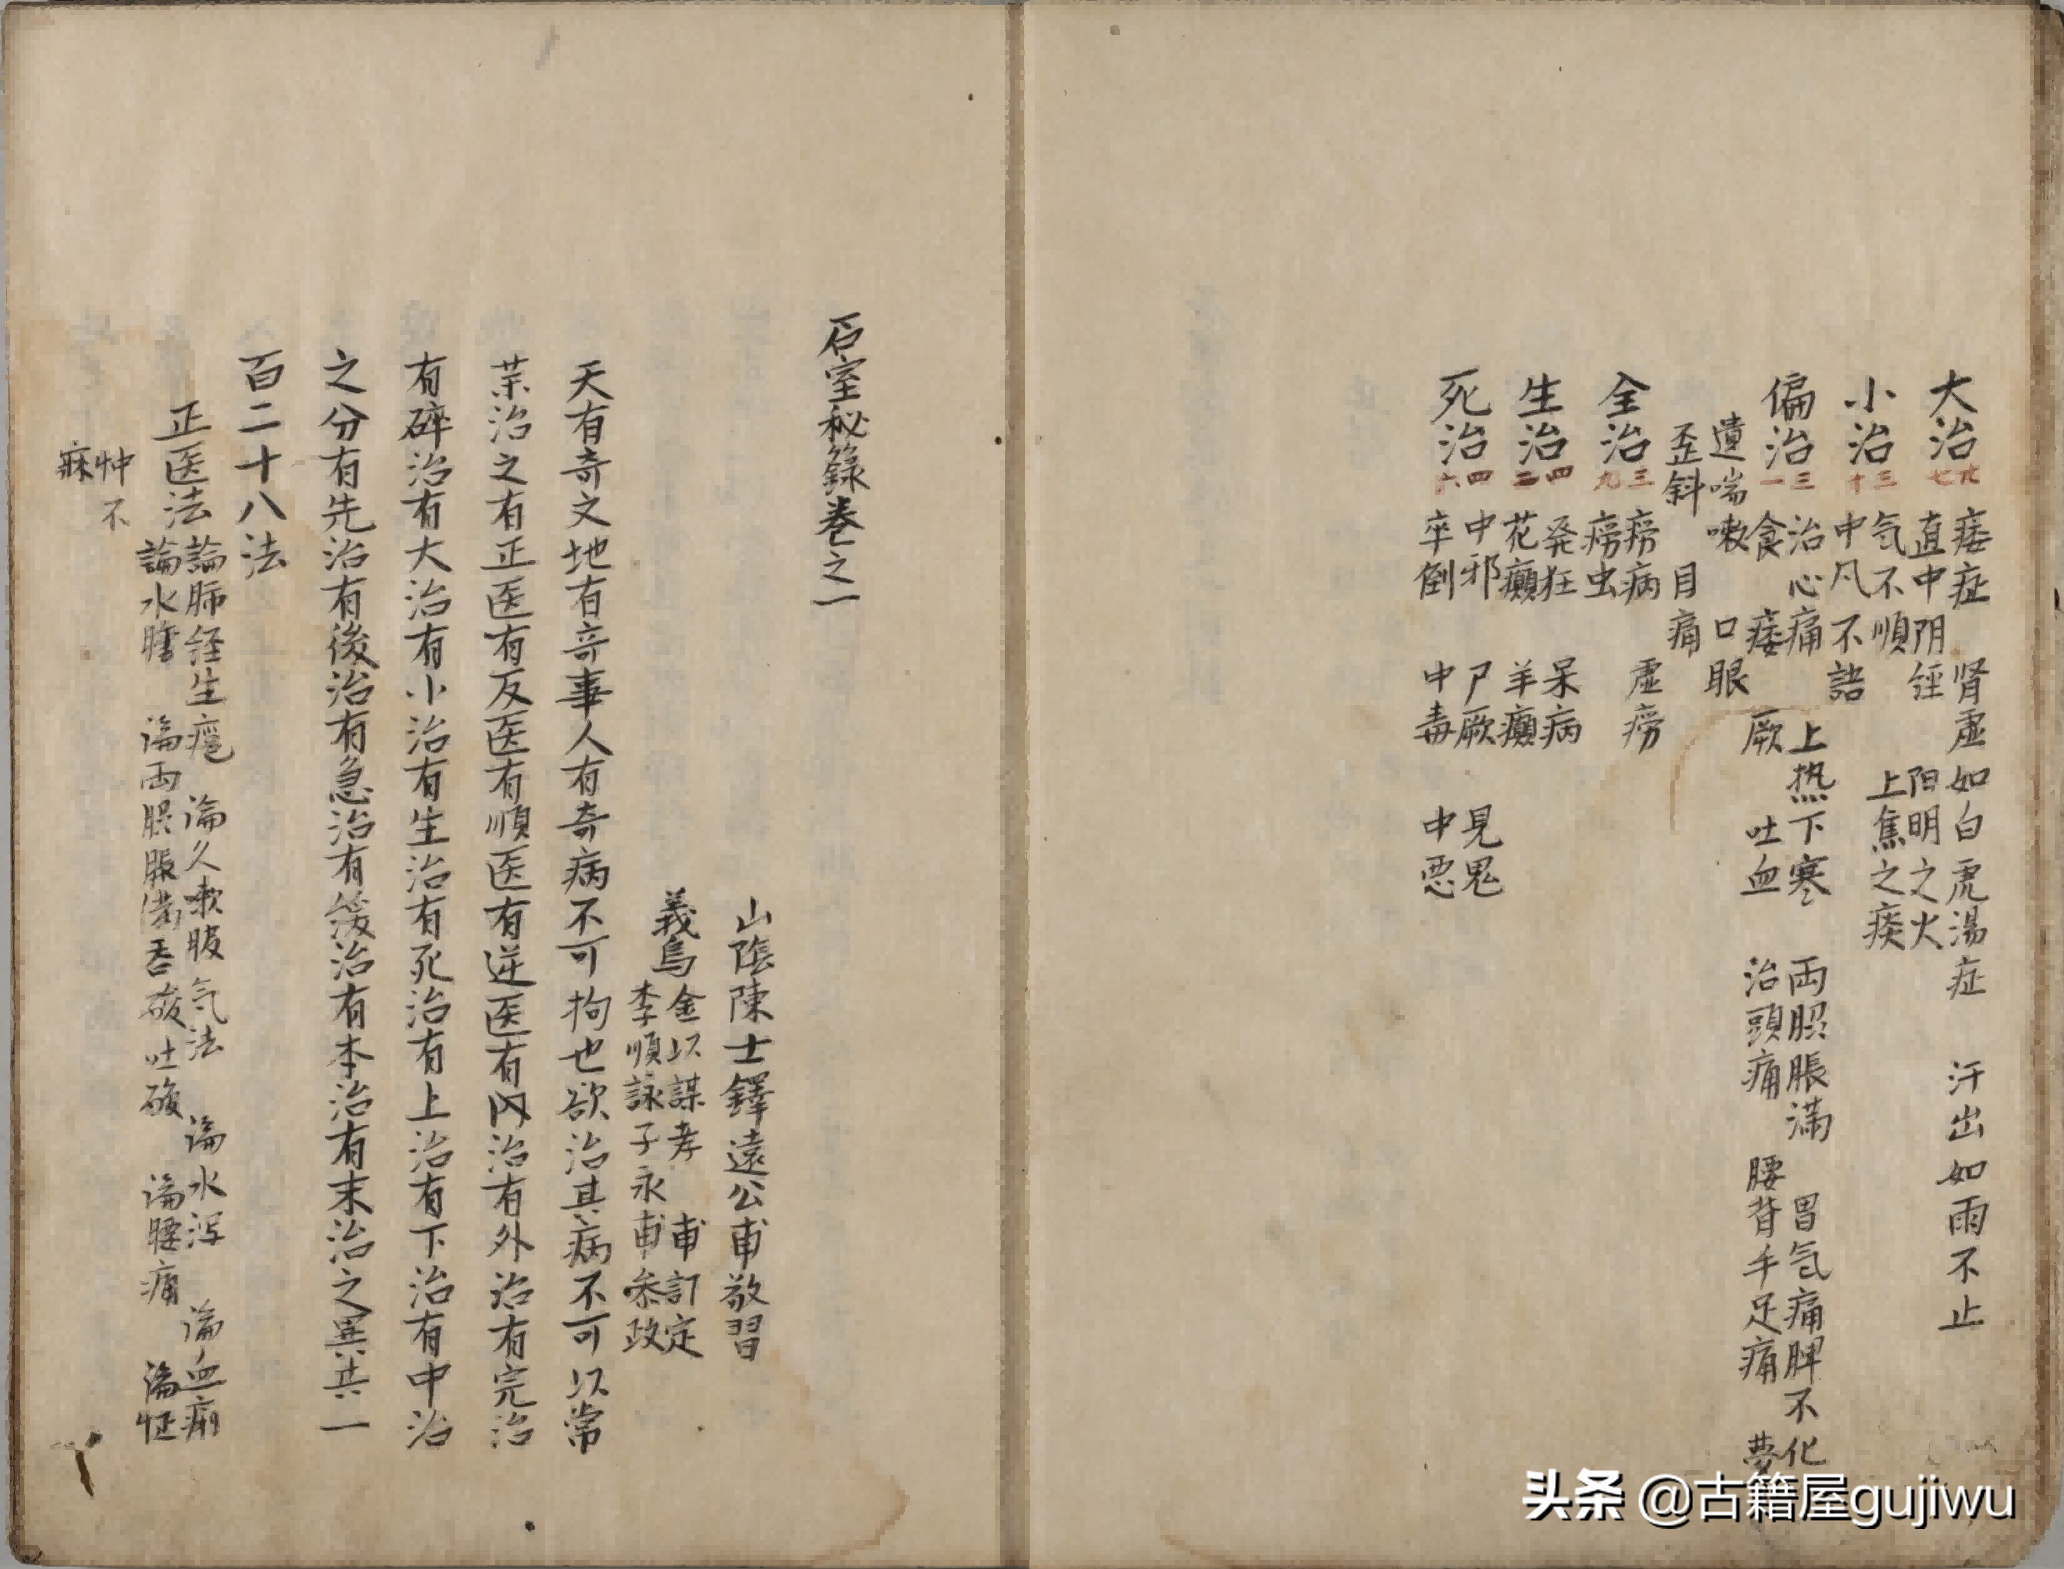 大治 廿七 痿症 肾虚如白虎湯症 汗出如雨不止
直中阴経 阳明之火
小治 三十 气不順 上焦之痰
中风不語
偏治 三一 治心痛 上热下寒 両脇脹満 胃气痛脾不化
食 痿厥 吐血 治頭痛 腰背手足痛 夢
遺 喘嗽 口眼
歪斜 目痛
全治 三九 痨病 虚痨
痨虫
生治 四二 発狂 呆病
花癲 羊癲
死治 四六 中邪 尸厥 見鬼
卒倒 中毒 中悪
石室秘籙卷之一
山陰陳士鐸遠公甫敬習
義烏 金以謀孝 甫訂定
李順詠子永甫參政
天有奇文地有奇事人有奇病不可拘也欲治其病不可以常
業治之有正医有反医有順医有逆医有内治有外治有完治
有碎治有大治有小治有生治有死治有上治有下治有中治
之分有先治有後治有急治有緩治有本治有末治之異共一
百二十八法
正医法 論肺経生瘡 論久嗽服气法 論水泻 論血痢
論水脹 論両脇脹満吞酸吐酸 論腰痛 論怔
忡 不
寐
头条 @古籍屋gujiwu